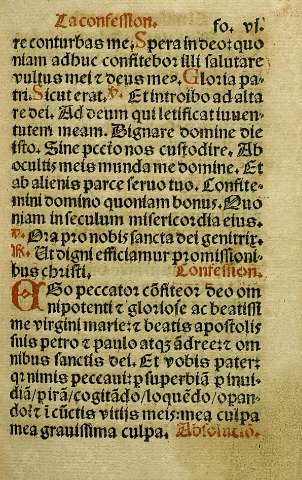 La confession. fo. vi.
re conturbas me. Spera in deo: quo
niam adhuc confitebor illi salutare
vultus mei ⁊ deus me⁹. Gloria pa-
tri. Sicut erat. ℣. Et introibo ad alta
re dei. Ad deum qui letificat iuuen-
tutem meam. Dignare domine die
isto. Sine pcc̃io nos custodire. Ab
ocultis meis munda me domine. Et
ab alienis parce seruo tuo. Confite-
mini domino quoniam bonus. Quo
niam in seculum misericordia eius.
℣. Ora pro nobis sancta dei genitrix.
℟. Ut digni efficiamur promissioni-
bus christi. Confession.
EGo peccator cõfiteor deo om
nipotenti ⁊ gloriose ac beatissi
me virgini marie: ⁊ beatis apostolis
suis petro ⁊ paulo atqȝ ãdree: ⁊ om
nibus sanctis dei. Et vobis pater:
qꝛ nimis peccaui: ꝑ superbiã ꝑ inui-
diã/ ꝑ irã/ cogitãdo/ loquẽdo/ opan-
do: ⁊ ĩ cũctis vitijs meis: mea culpa
mea grauissima culpa. Absolucio.